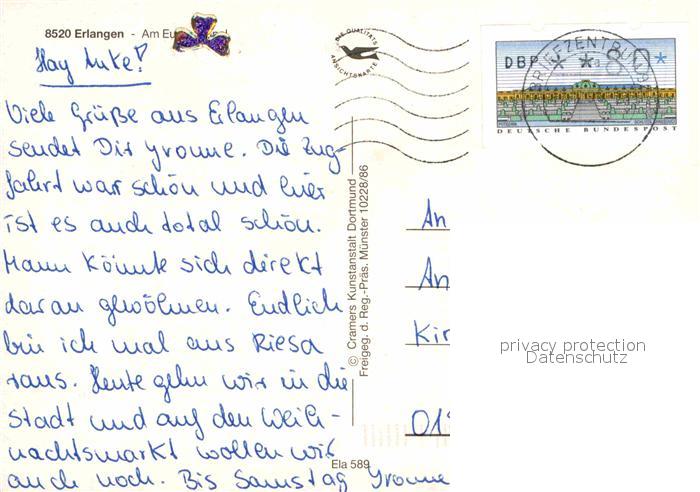 8520 Erlangen - Am Eu
Hay Anke!
Viele Grüße aus Erlangen
sendet Dir Yvonne. Die Zug-
fahrt war schön und hier
ist es auch total schön.
Mann könnte sich direkt
daran gewöhnen. Endlich
bin ich mal aus Riesa
raus. Heute gehn wir in die
Stadt und auf den Weih-
nachtsmarkt wollen wir
auch noch. Bis Samstag Yvonne
DIE QUALITÄTS
ANSICHTSKARTE
© Cramers Kunstanstalt Dortmund
Freigeg. d. Reg.-Präs. Münster 10228/86
Ela 589
DBP * * 80 *
BRIEFZENTRUM
DEUTSCHE BUNDESPOST
An
An
Kir
01
privacy protection
Datenschutz